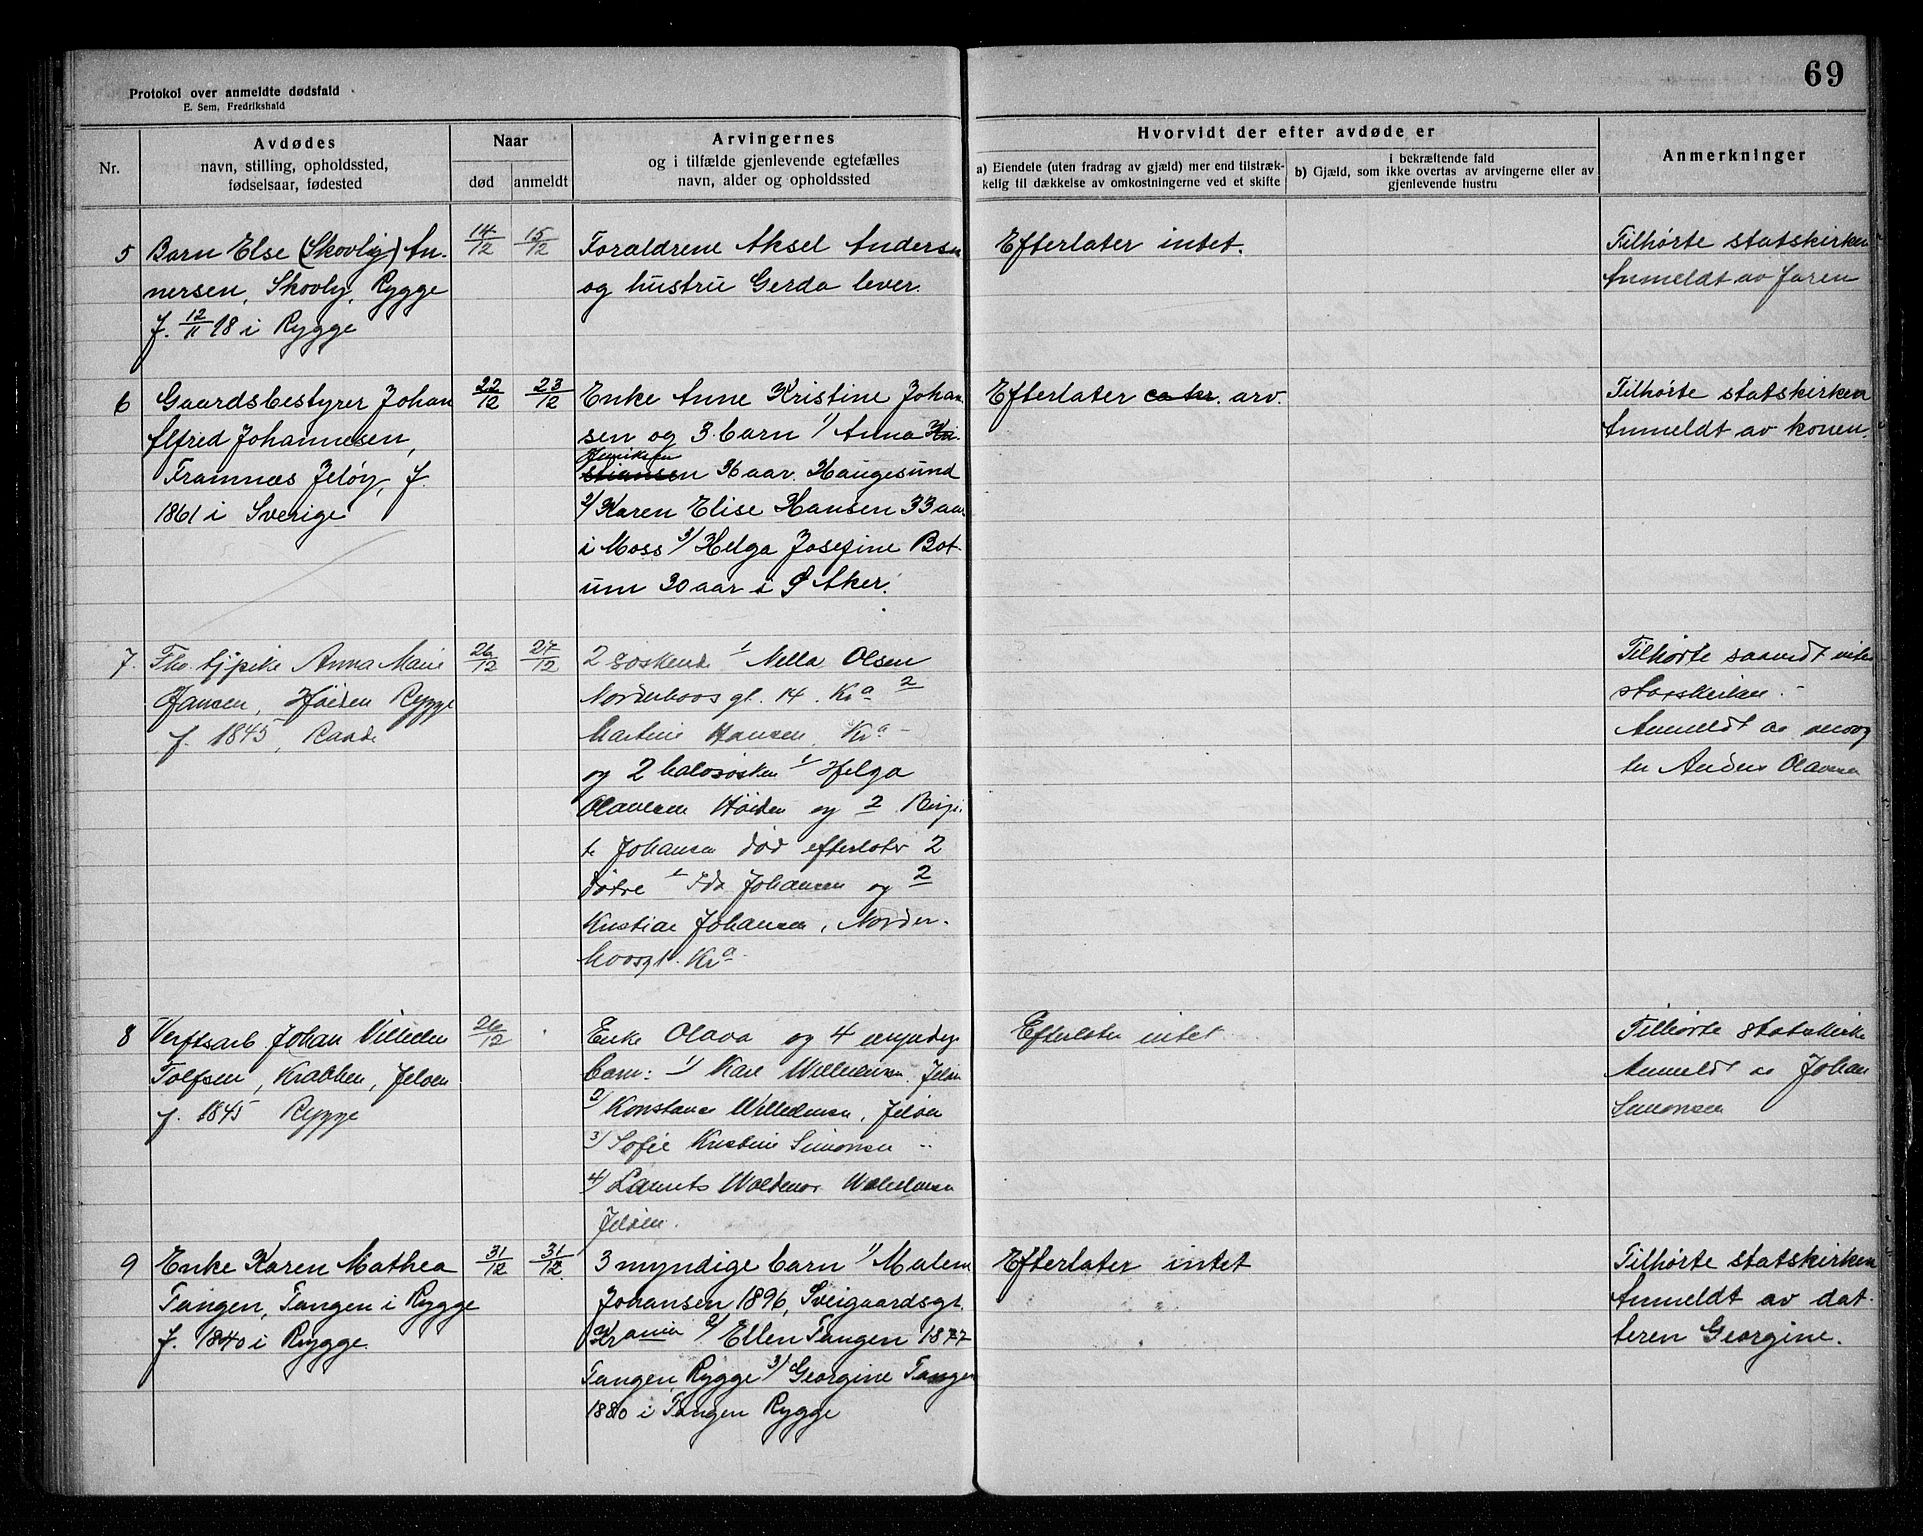 69
Protokol over anmeldte dødsfald
E. Sem, Fredrikshald
Nr.
Avdødes
navn, stilling, opholdssted,
fødselsaar, fødested
Naar
død
anmeldt
Arvingernes
og i tilfælde gjenlevende egtefælles
navn, alder og opholdssted
Hvorvidt der efter avdøde er
a) Eiendele (uten fradrag av gjæld) mer end tilstræk-
kelig til dækkelse av omkostningerne ved et skifte
I bekræftende fald
b) Gjæld, som ikke overtas av arvingerne eller av
gjenlevende hustru
Anmerkninger
5
Barn Else (Skovly) An-
nersen, Skovly, Rygge
f. 12/11 18 i Rygge
14/12
15/12
Foraldrene Aksel Andersen
og hustru Gerda lever.
Efterlater intet.
Tilhørte statskirken
Anmeldt av faren
6
Gaardsbestyrer Johan
Alfred Johannesen,
Framnæs Jeløy, f.
1861 i Sverige
22/12
23/12
Enke Anne Kristine Johan
sen og 3 barn 1/ Anna Kri-
Henriksen
stiansen 36 aar. Haugesund
2/ Karen Elise Hansen 33 aar
i Moss 3/ Helga Josefine Bot-
um 30 aar i Ø Aker.
Efterlater ca kr. arv.
Tilhørte statskirken
Anmeldt av konen.
7.
Fhv. tjpike Anna Marie
Hansen, Høiden Rygge
f. 1845, Raade
26/12
27/12
2 søskende 1/ Nella Olsen
Norderhovsgt. 14. Kra 2
Martine Hansen, Kra -
og 2 halvsøsken 1/ Helga
Olavesen Høiden og 2 Birgit-
te Johansen død efterlater 2
døtre 1 Ida Johansen og 2
Kristine Johansen, Norder-
hovsgt. Kra
Tilhørte saavidt vites
statskirken. -
Anmeldt av svog
er Anders Olavesen
8
Verftsarb Johan Villedsen
Tolfsen, Krabben, Jeløen
f. 1845 Rygge
26/12
Enke Olava og 4 myndige
barn: 1/ Karl Willedsen, Jeløen
2/ Konstance Willedsen, Jeløen
3/ Sofie Kristine Simonsen "
4/ Laurits Waldemar Willedsen
Jeløen.
Efterlater intet
Tilhørte statskirke
Anmeldt av Johan
Simonsen
9
Enke Karen Mathea
Tangen, Tangen i Rygge
f. 1840 i Rygge
31/12
31/12
3 myndige barn 1/ Malene
Johansen 1896, Sveigaardsgt.
Krania 2/ Ellen Tangen 1877
Tangen Rygge 3/ Georgine Tangen
1880 i Tangen Rygge
Efterlater intet
Tilhørte statskirken
Anmeldt av dat-
teren Georgine.